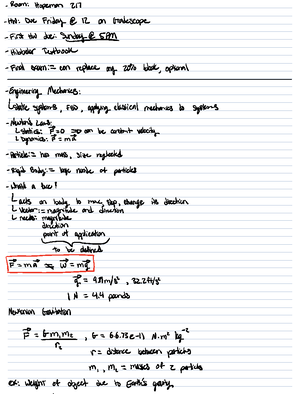 - Room: Hopeman 217
- HW: Due Friday @ 12 on Gradescope
- First HW due: Sunday @ 5 AM
- Hibbeler Textbook
- Final exam:= can replace my 20% block, optional
- Engineering Mechanics:
↳ static systems, FBD, applying classical mechanics to systems
- Newton's Laws
↳ Statics: F = 0 ⇒ can be constant velocity
↳ Dynamics: F = ma
- Particle:= has mass, size neglected
- Rigid Body:= large number of particles
- What is a force?
↳ acts on body to move, stop, change its direction
↳ vector:= magnitude and direction
↳ needs: magnitude
direction
point of application
to be defined
F = ma ⇒ W = mg
g = 9.81 m/s², 32.2 ft/s²
1 N = 4.4 pounds
Newtonian Gravitation
F = G m₁ m₂ / r₂ , G = 6.673e-11 N·m² kg⁻²
r = distance between particles
m₁, m₂ = masses of 2 particles
ex: Weight of object due to Earth's gravity